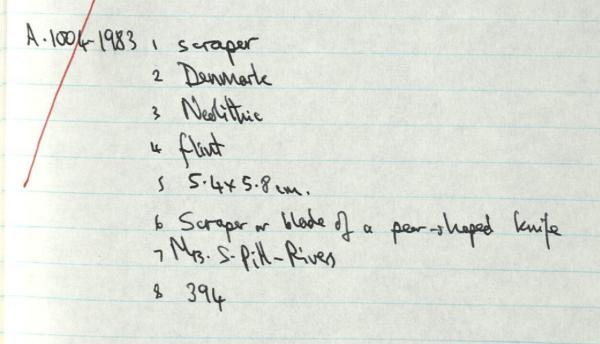 A.1004-1983 1 scraper
2 Denmark
3 Neolithic
4 flint
5 5.4 x 5.8 cm.
6 Scraper or blade of a pear-shaped knife
7 Mrs. S. Pitt-Rivers
8 394